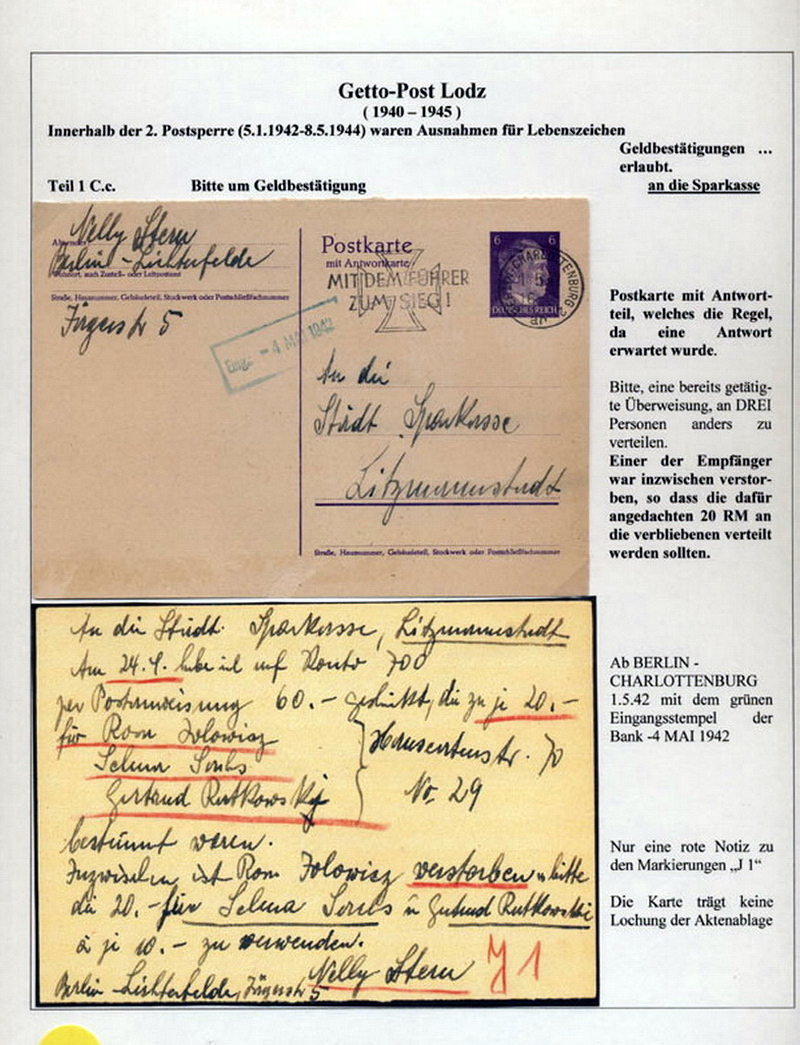 Getto-Post Lodz
( 1940 – 1945 )
Innerhalb der 2. Postsperre (5.1.1942-8.5.1944) waren Ausnahmen für Lebenszeichen
Geldbestätigungen ...
erlaubt.
Teil 1 C.c. Bitte um Geldbestätigung an die Sparkasse
Nelly Stern
Berlin - Lichterfelde
Wohnort, auch Zustell- oder Leitpostamt
Straße, Hausnummer, Gebäudeteil, Stockwerk oder Postschließfachnummer
Jägerstr 5
Eing. - 4 MAI 1942
Postkarte
mit Antwortkarte
MIT DEM FÜHRER
ZUM SIEG!
6 6
DEUTSCHES REICH
An die
Städt. Sparkasse
Litzmannstadt
Straße, Hausnummer, Gebäudeteil, Stockwerk oder Postschließfachnummer
Postkarte mit Antwort-
teil, welches die Regel,
da eine Antwort
erwartet wurde.
Bitte, eine bereits getätig-
te Überweisung, an DREI
Personen anders zu
verteilen.
Einer der Empfänger
war inzwischen verstor-
ben, so dass die dafür
angedachten 20 RM an
die verbliebenen verteilt
werden sollten.
An die Städt. Sparkasse, Litzmannstadt
Am 24.4. habe ich auf Konto 700
per Postanweisung 60.- geschickt, die zu je 20.-
für Rosa Zolowicz
Selma
Gertrud Rutkowski
Hanseatenstr. 70
No. 29
bestimmt waren.
Inzwischen ist Rosa Zolowicz verstorben u. bitte
die 20.- für Selma u Gertrud Rutkowski
à je 10.- zu verwenden.
Nelly Stern
Berlin - Lichterfelde, Jägerstr 5
J 1
Ab BERLIN -
CHARLOTTENBURG
1.5.42 mit dem grünen
Eingangsstempel der
Bank -4 MAI 1942
Nur eine rote Notiz zu
den Markierungen „J 1“
Die Karte trägt keine
Lochung der Aktenablage